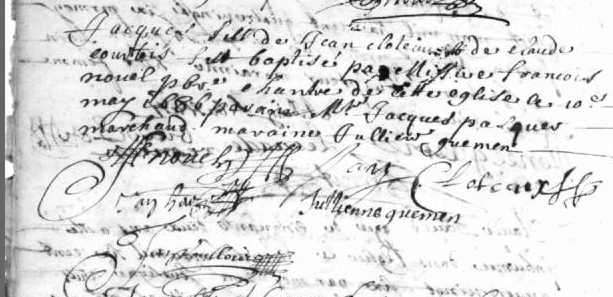 Jacques fils de Jean cloteaux & de claude
courtois fut baptisé par Missire francois
nouel pbre chantre de cette eglise le 10e
may 1686 paraine Mtre Jacques pasques
marchand maraine Jullienne quemen
f nouel
Cloteaux
Jullienne quemen